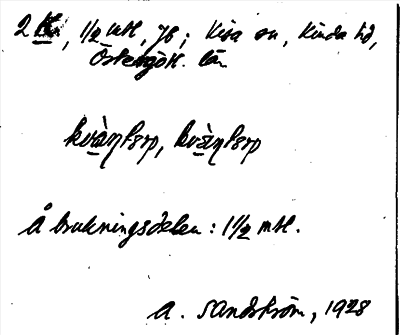 2 Kv, 1/2 mtl, JB; Kisa sn, Kinda hd,
Östergötl. län
kvàṇtorp, kvàṇtorp
Å brukningsdelen: 1 1/2 mtl.
A. Sandström, 1928